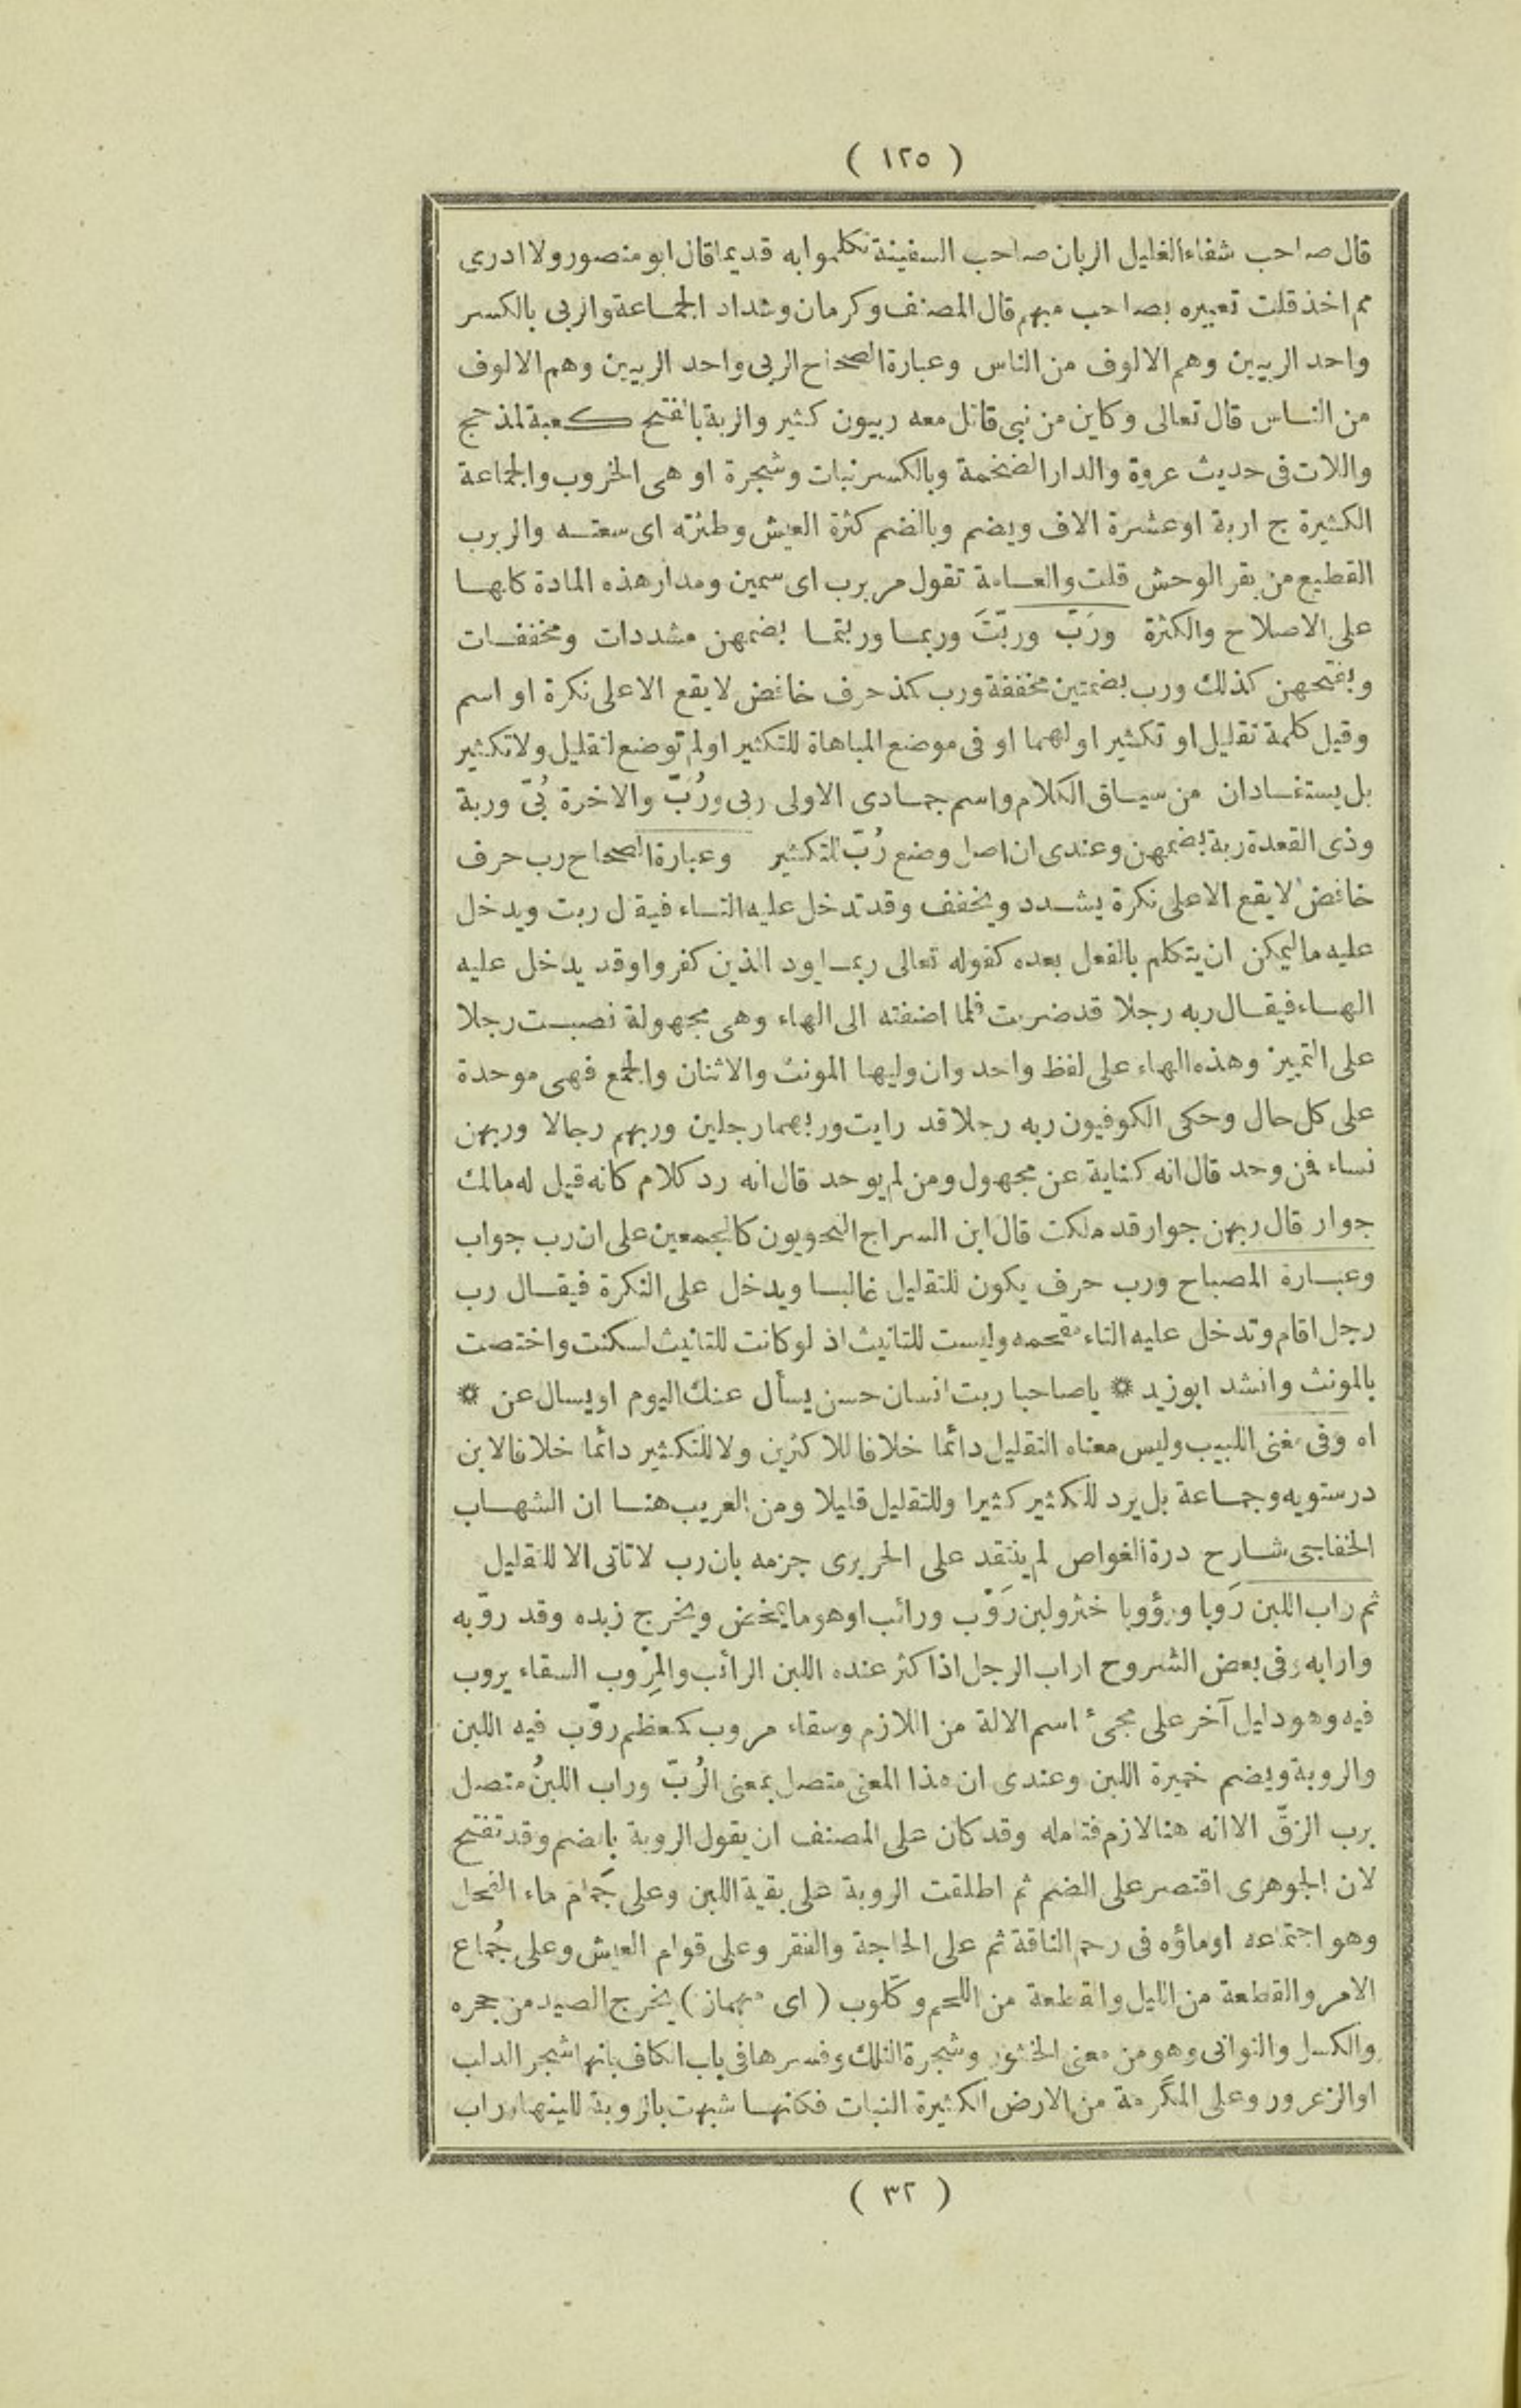 ( ١٢٥ )
قال صاحب شفاء الغليل الربان صاحب السفينة تكلموا به قديما قال ابو منصور ولا ادرى
مم اخذ قلت تعبيره بصاحب مبهم قال المصنف وكرمان وشداد الجماعة والربى بالكسر
واحد الربيين وهم الالوف من الناس وعبارة الصحاح الربى واحد الربيين وهم الالوف
من الناس قال تعالى وكاين من نبى قاتل معه ربيون كثير والربة بالفتح كعبة لمذحج
واللات فى حديث عروة والدار الضخمة وبالكسر نبات وشجرة او هى الخروب والجماعة
الكثيرة ج اربة او عشرة الاف ويضم وبالضم كثرة العيش وطثرته اى سعته والربرب
القطيع من بقر الوحش قلت والعامة تقول مربرب اى سمين ومدار هذه المادة كلها
على الاصلاح والكثرة ورَبّ وربّتَ وربما وربتما بضمهن مشددات ومخففات
وبفتحهن كذلك ورب بضمتين مخففة ورب كمذ حرف خافض لا يقع الا على نكرة او اسم
وقيل كلمة تقليل او تكثير او لهما او فى موضع المباهاة للتكثير او لم توضع لتقليل ولا تكثير
بل يستفادان من سياق الكلام واسم جمادى الاولى ربى ورُبّ والاخرة رُبّى وربة
وذى القعدة ربة بضمهن وعندى ان اصل وضع رُبّ للتكثير وعبارة الصحاح رب حرف
خافض لا يقع الا على نكرة يشدد ويخفف وقد تدخل عليه التاء فيقال ربت ويدخل
عليه ما ليمكن ان يتكلم بالفعل بعده كقوله تعالى ربما يود الذين كفروا وقد يدخل عليه
الهاء فيقال ربه رجلا قد ضربت فلما اضفته الى الهاء وهى مجهولة نصبت رجلا
على التمييز وهذه الهاء على لفظ واحد وان وليها المونث والاثنان والجمع فهى موحدة
على كل حال وحكى الكوفيون ربه رجلا قد رايت وربهما رجلين وربهم رجالا وربهن
نساء فمن وحد قال انه كناية عن مجهول ومن لم يوحد قال انه رد كلام كانه قيل له مالك
جوار قال ربهن جوار قد ملكت قال ابن السراج النحويون كالمجمعين على ان رب جواب
وعبارة المصباح ورب حرف يكون للتقليل غالبا ويدخل على النكرة فيقال رب
رجل اقام وتدخل عليه التاء مقحمه وليست للتانيث اذ لو كانت للتانيث لسكنت واختصت
بالمونث وانشد ابو زيد * يا صاحبا ربت انسان حسن يسأل عنك اليوم او يسال عن *
اه وفى مغنى اللبيب وليس معناه التقليل دائما خلافا للاكثرين ولا للتكثير دائما خلافا لابن
درستويه وجماعة بل يرد للتكثير كثيرا وللتقليل قليلا ومن الغريب هنا ان الشهاب
الخفاجى شارح درة الغواص لم ينتقد على الحريرى جزمه بان رب لا تاتى الا للتقليل
ثم راب اللبن رَوبا ورؤوبا خثر ولبن رَوْب ورائب او هو ما يمخض ويخرج زبده وقد روّبه
وارابه وفى بعض الشروح اراب الرجل اذا كثر عنده اللبن الرائب والمِرْوب السقاء يروب
فيه وهو دليل آخر على مجئ اسم الالة من اللازم وسقاء مروب كمعظم روّب فيه اللبن
والروبة ويضم خميرة اللبن وعندى ان هذا المعنى متصل بمعنى الرُبّ وراب اللبنُ متصل
برب الزقّ الا انه هنا لازم فتامله وقد كان على المصنف ان يقول الروبة بالضم وقد تفتح
لان الجوهرى اقتصر على الضم ثم اطلقت الروبة على بقية اللبن وعلى جَمام ماء الفحل
وهو اجتماعه او ماؤه فى رحم الناقة ثم على الحاجة والفقر وعلى قوام العيش وعلى جُماع
الامر والقطعة من الليل والقطعة من اللحم وكلّوب ( اى مهماز ) يخرج الصيد من جحره
والكسل والتوانى وهو من معنى الخثور وشجرة النلك وفسرها فى باب الكاف بانها شجر الدلب
او الزعرور وعلى المكرمة من الارض الكثيرة النبات فكانها شبهت بالروبة للينها وراب
( ٣٢ )